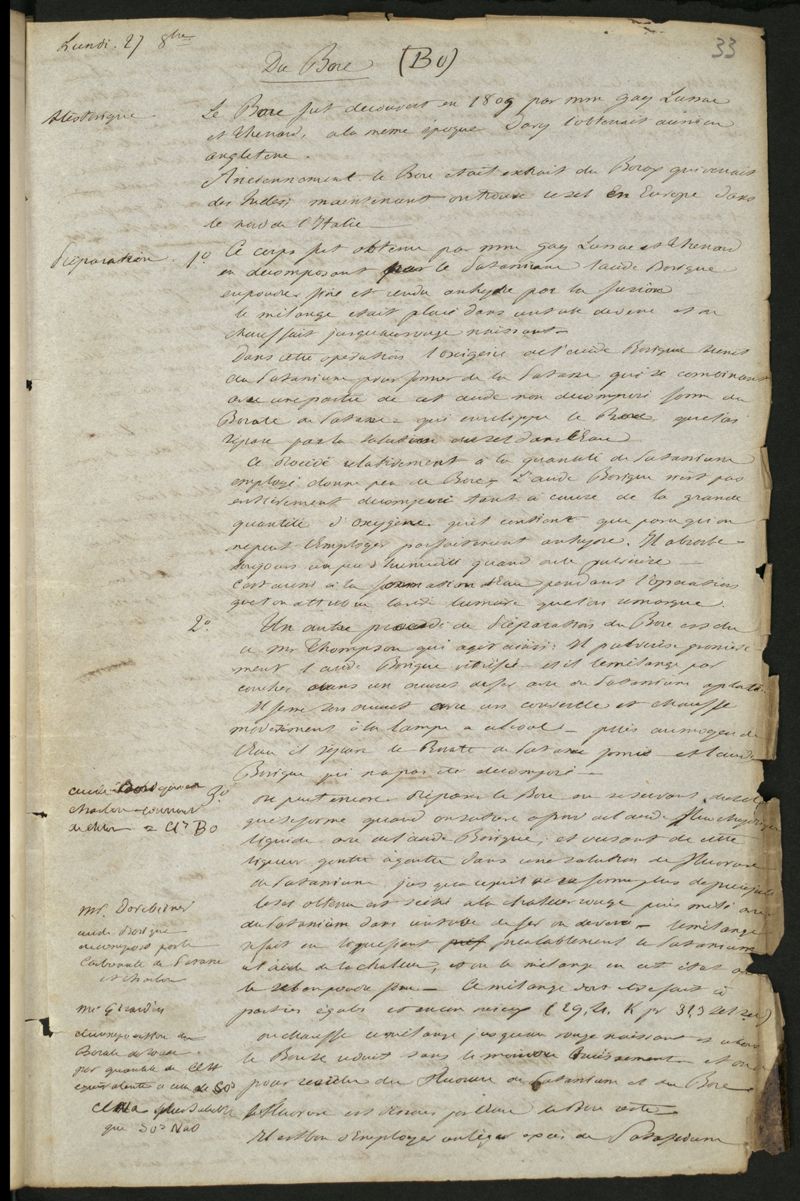 Lundi. 27 8bre
33
Du Bore (Bo)
historique.
Le Bore fut decouvert en 1809 par mm gay Lussac
et thenard, a la même époque Davy l'obtenait aussi en
angleterre.
Anciennement le Bore était extrait du Borax qui venait
des Indes; maintenant on trouve ce sel en Europe dans
le nord de l'Italie
Préparation. 1o. Ce corps fut obtenu par mm gay Lussac et thenard
en décomposant par le Potassium l'acide Borique
en poudre fine et rendu anhydre par la fusion
le mélange était placé dans un tube de verre et on
chauffait jusqu'au rouge naissant
Dans cette opération l'oxigène de l'acide Borique
du Potassium pour former de la Potasse qui se combinant
avec une partie de cet acide non décomposé forme du
Borate de Potasse qui enveloppe le Bore que l'on
sépare par la solution du sel dans l'Eau
Ce Procédé relativement à la quantité de Potassium
employé donne peu de Bore. L'acide Borique n'est pas
entièrement décomposé tant à cause de la grande
quantité d'oxygène qu'il contient que parcequ'on
ne peut l'employer parfaitement anhydre. Il absorbe
toujours un peu d'humidité quand on le pulvérise
C'est aussi à la formation d'Eau pendant l'opération
que l'on attribue la lumière que l'on remarque.
2o. Un autre procédé de Préparation du Bore est dû
à mr Thompson qui agit ainsi: Il pulvérise
l'acide Borique vitrifié et il le mélange par
couches dans un creuset de fer avec du Potassium
Il ferme son creuset avec un couvercle et chauffe
modérément à la lampe a alcool — puis au moyen de
l'Eau il sépare le Borate de Potasse formé et l'acide
Borique qui n'a pas été décomposé —
acide borique
charbon courant
de chlore = Cl3 Bo
3o. on peut encore Préparer le Bore en se servant du sel
que se forme quand on sature à froid de l'acide
liquide avec de l'acide Borique; et versant de cette
liqueur goutte à goutte dans une solution de fluorure
de Potassium jusqu'à ce qu'il ne se forme plus de
le sel obtenu est séché à la chaleur rouge puis mêlé avec
du Potassium dans un tube de fer ou de verre — le mélange
se fait en liquéfiant préalablement le Potassium
à l'aide de la chaleur, et on le mélange en cet état avec
le sel en poudre fine — Ce mélange doit être fait à
parties égales et encore mieux (29,4 K pr 31,3 sel sec)
on chauffe ce mélange jusqu'au rouge naissant et alors
le Bore réduit sans le moindre
pour résidu du Fluorure de Potassium et du Bore
le Fluorure est dissous par l'eau le Bore reste
Il est bon d'Employer un léger excès de Potassium
mr. Doebereiner
acide Borique
décomposé par le
Carbonate de Potasse
et charbon
mr Girardin
décomposition du
Borate de soude
par quantité de ClH
équivalente à celle de So3
ClNa plus soluble
que So3 NaO